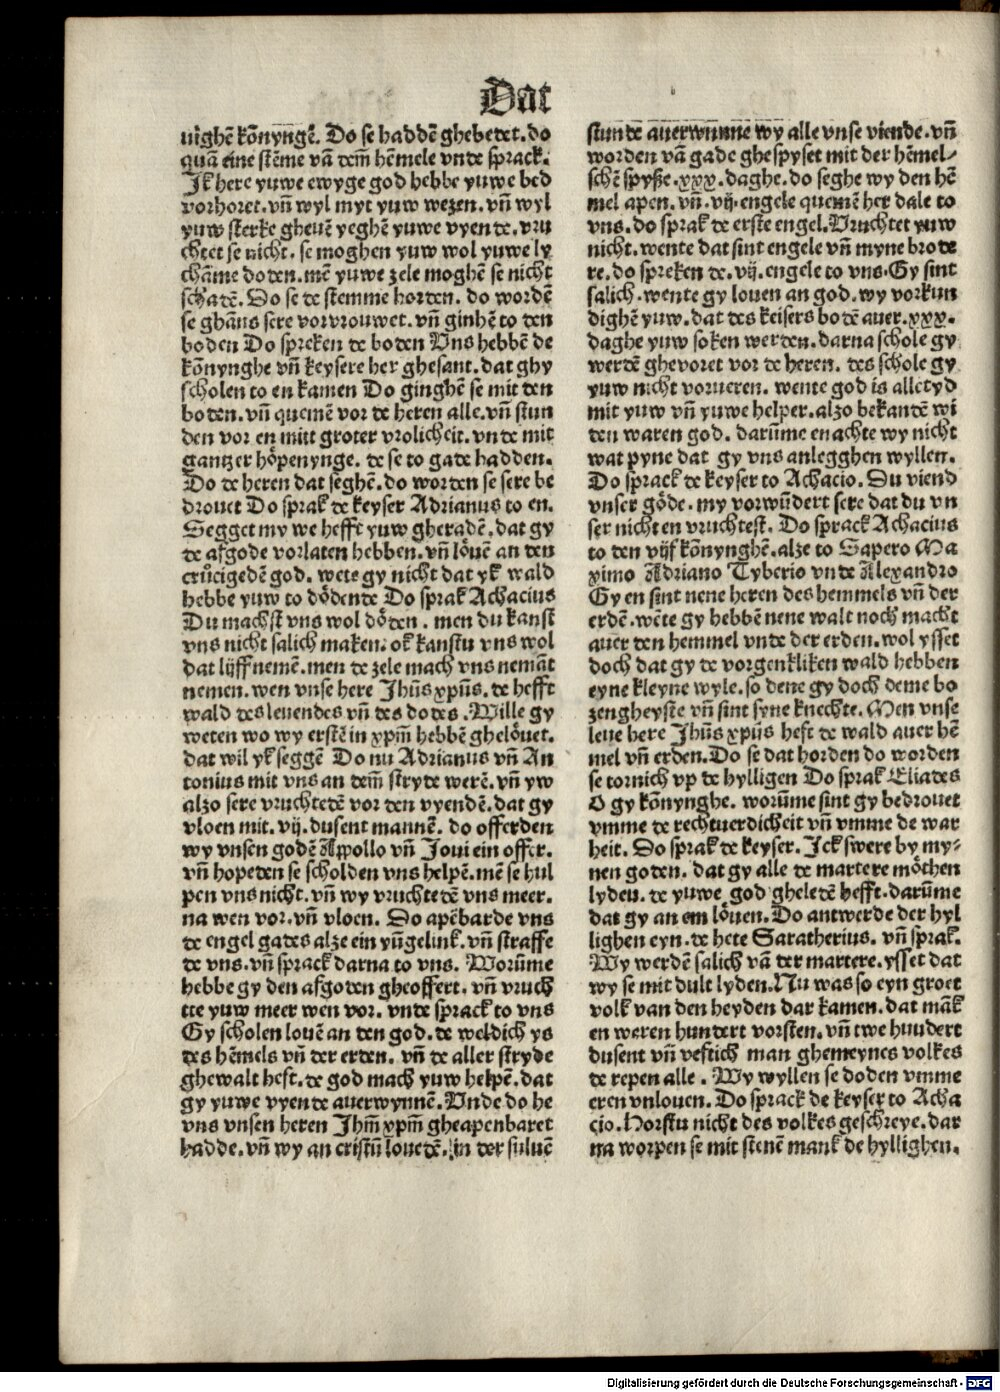 Dat
uighē kōnyngē. Do se haddē ghebedet. do
quā eine stēme vā dem̄ hēmele vnde sprack.
Ik here yuwe ewyge god hebbe yuwe bed
vorhoret. vn̄ wyl myt yuw wezen. vn̄ wyl
yuw sterke gheuē yeghē yuwe vyende. vru
chtet se nicht. se moghen yuw wol yuwe ly
chāme doden. mē yuwe zele moghē se nicht
schadē. Do se de stemme horden. do wordē
se ghāns sere vorvrouwet. vn̄ ginhē to den
boden Do spreken de boden Vns hebbēn de
kōnynghe vn̄ keysere her ghesant. dat ghy
scholen to en kamen Do ginghē se mit den
boden. vn̄ quemē vor de heren alle. vn̄ stun
den vor en mitt groter vrolicheit. vnde mit
gantzer hōpenynge. de se to gade hadden.
Do de heren dat seghē. do worden se sere be
drouet Do sprak de keyser Adrianus to en.
Segget my we hefft yuw gheradē. dat gy
de afgode vorlaten hebben. vn̄ lōuē an den
crūcigedē god. wete gy nicht dat yk wald
hebbe yuw to dōdende Do sprak Achacius
Du machst vns wol dōden. men du kanst
vns nicht salich maken. ok kanstu vns wol
dat lijff nemē. men de zele mach vns nemāt
nemen. wen vnse here Jhūs xpūs. de hefft
wald des leuendes vn̄ des dodes. Wille gy
weten wo wy erstē in xpm̄ hebbē ghelōuet.
dat wil yk seggē Do nu Adrianus vn̄ An
tonius mit vns an dem̄ stryde werē. vn̄ yw
alzo sere vruchtedē vor den vyendē. dat gy
vloen mit. vij. dusent mannē. do offerden
wy vnsen godē Appollo vn̄ Joui ein offer.
vn̄ hopeden se scholden vns helpē. mē se hul
pen vns nicht. vn̄ wy vruchtedē vns meer.
na wen vor. vn̄ vloen. Do apēbarde vns
de engel gades alze ein yūgelink. vn̄ straffe
de vns. vn̄ sprack darna to vns. Worūme
hebbe gy den afgoden gheoffert. vn̄ vruch
tte yuw meer wen vor. vnde sprack to vns
Gy scholen louē an den god. de weldich ys
des hēmels vn̄ der erden. vn̄ de aller stryde
ghewalt heft. de god mach yuw helpē. dat
gy yuwe vyende auerwynnē. Vnde do he
vns vnsen heren Jhm̄ xpm̄ gheapenbaret
hadde. vn̄ wy an cristū louedē. in der suluē
stunde auerwunne wy alle vnse viende. vn̄
worden vā gade ghespyset mit der hēmel⸗
schē spyße. xxx. daghe. do seghe wy den hē
mel apen. vn̄. vij. engele quemē her dale to
vns. do sprak de erste engel. Vruchtet yuw
nicht. wente dat sint engele vn̄ myne brode
re. do spreken de. vij. engele to vns. Gy sint
salich. wente gy louen an god. wy vorkun
dighē yuw. dat des keisers bodē auer. xxx.
daghe yuw soken werden. darna schole gy
werdē ghevoret vor de heren. des schole gy
yuw nicht vorueren. wente god is alletyd
mit yuw vn̄ yuwe helper. alzo bekandē wi
den waren god. darūme en achte wy nicht
wat pyne dat gy vns anlegghen wyllen.
Do sprack de keyser to Achacio. Du viend
vnser gōde. my vorwūdert sere dat du vn
ser nicht en vruchtest. Do sprack Achacius
to den vijf kōnynghē. alze to Sapero Ma
ximo Adriano Tyberio vnde Alexandro
Gy en sint nene heren des hemmels vn̄ der
erdē. wēte gy hebbē nene walt noch macht
auer den hemmel vnde der erden. wol ysset
doch dat gy de vorgenkliken wald hebben
eyne kleyne wyle. so dene gy doch deme bo
zengheyste vn̄ sint syne knechte. Men vnse
leue here Jhūs xpūs heft de wald auer hē
mel vn̄ erden. Do se dat horden do worden
se tornich vp de hylligen Do sprak Eliades
O gy kōnynghe. worūme sint gy bedrouet
vmme de rechtuerdicheit vn̄ vmme de war
heit. Do sprak de keyser. Ick swere by my⸗
nen goden. dat gy alle de martere mōthen
lyden. de yuwe god gheledē hefft. darūme
dat gy an em lōuen. Do antwerde der hyl
lighen eyn. de hete Saratherius. vn̄ sprak.
Wy werdē salich vā der martere. ysset dat
wy se mit dult lyden. Nu was so eyn groet
volk van den heyden dar kamen. dat māk
en weren hundert vorsten. vn̄ twe hundert
dusent vn̄ veftich man ghemeynes volkes
de repen alle. Wy wyllen se doden vmme
eren vnlouen. Do sprack de keyser to Acha
cio. Horstu nicht des volkes geschreye. dar
na worpen se mit stenē mank de hyllighen.
Digitalisierung gefördert durch die Deutsche Forschungsgemeinschaft - DFG